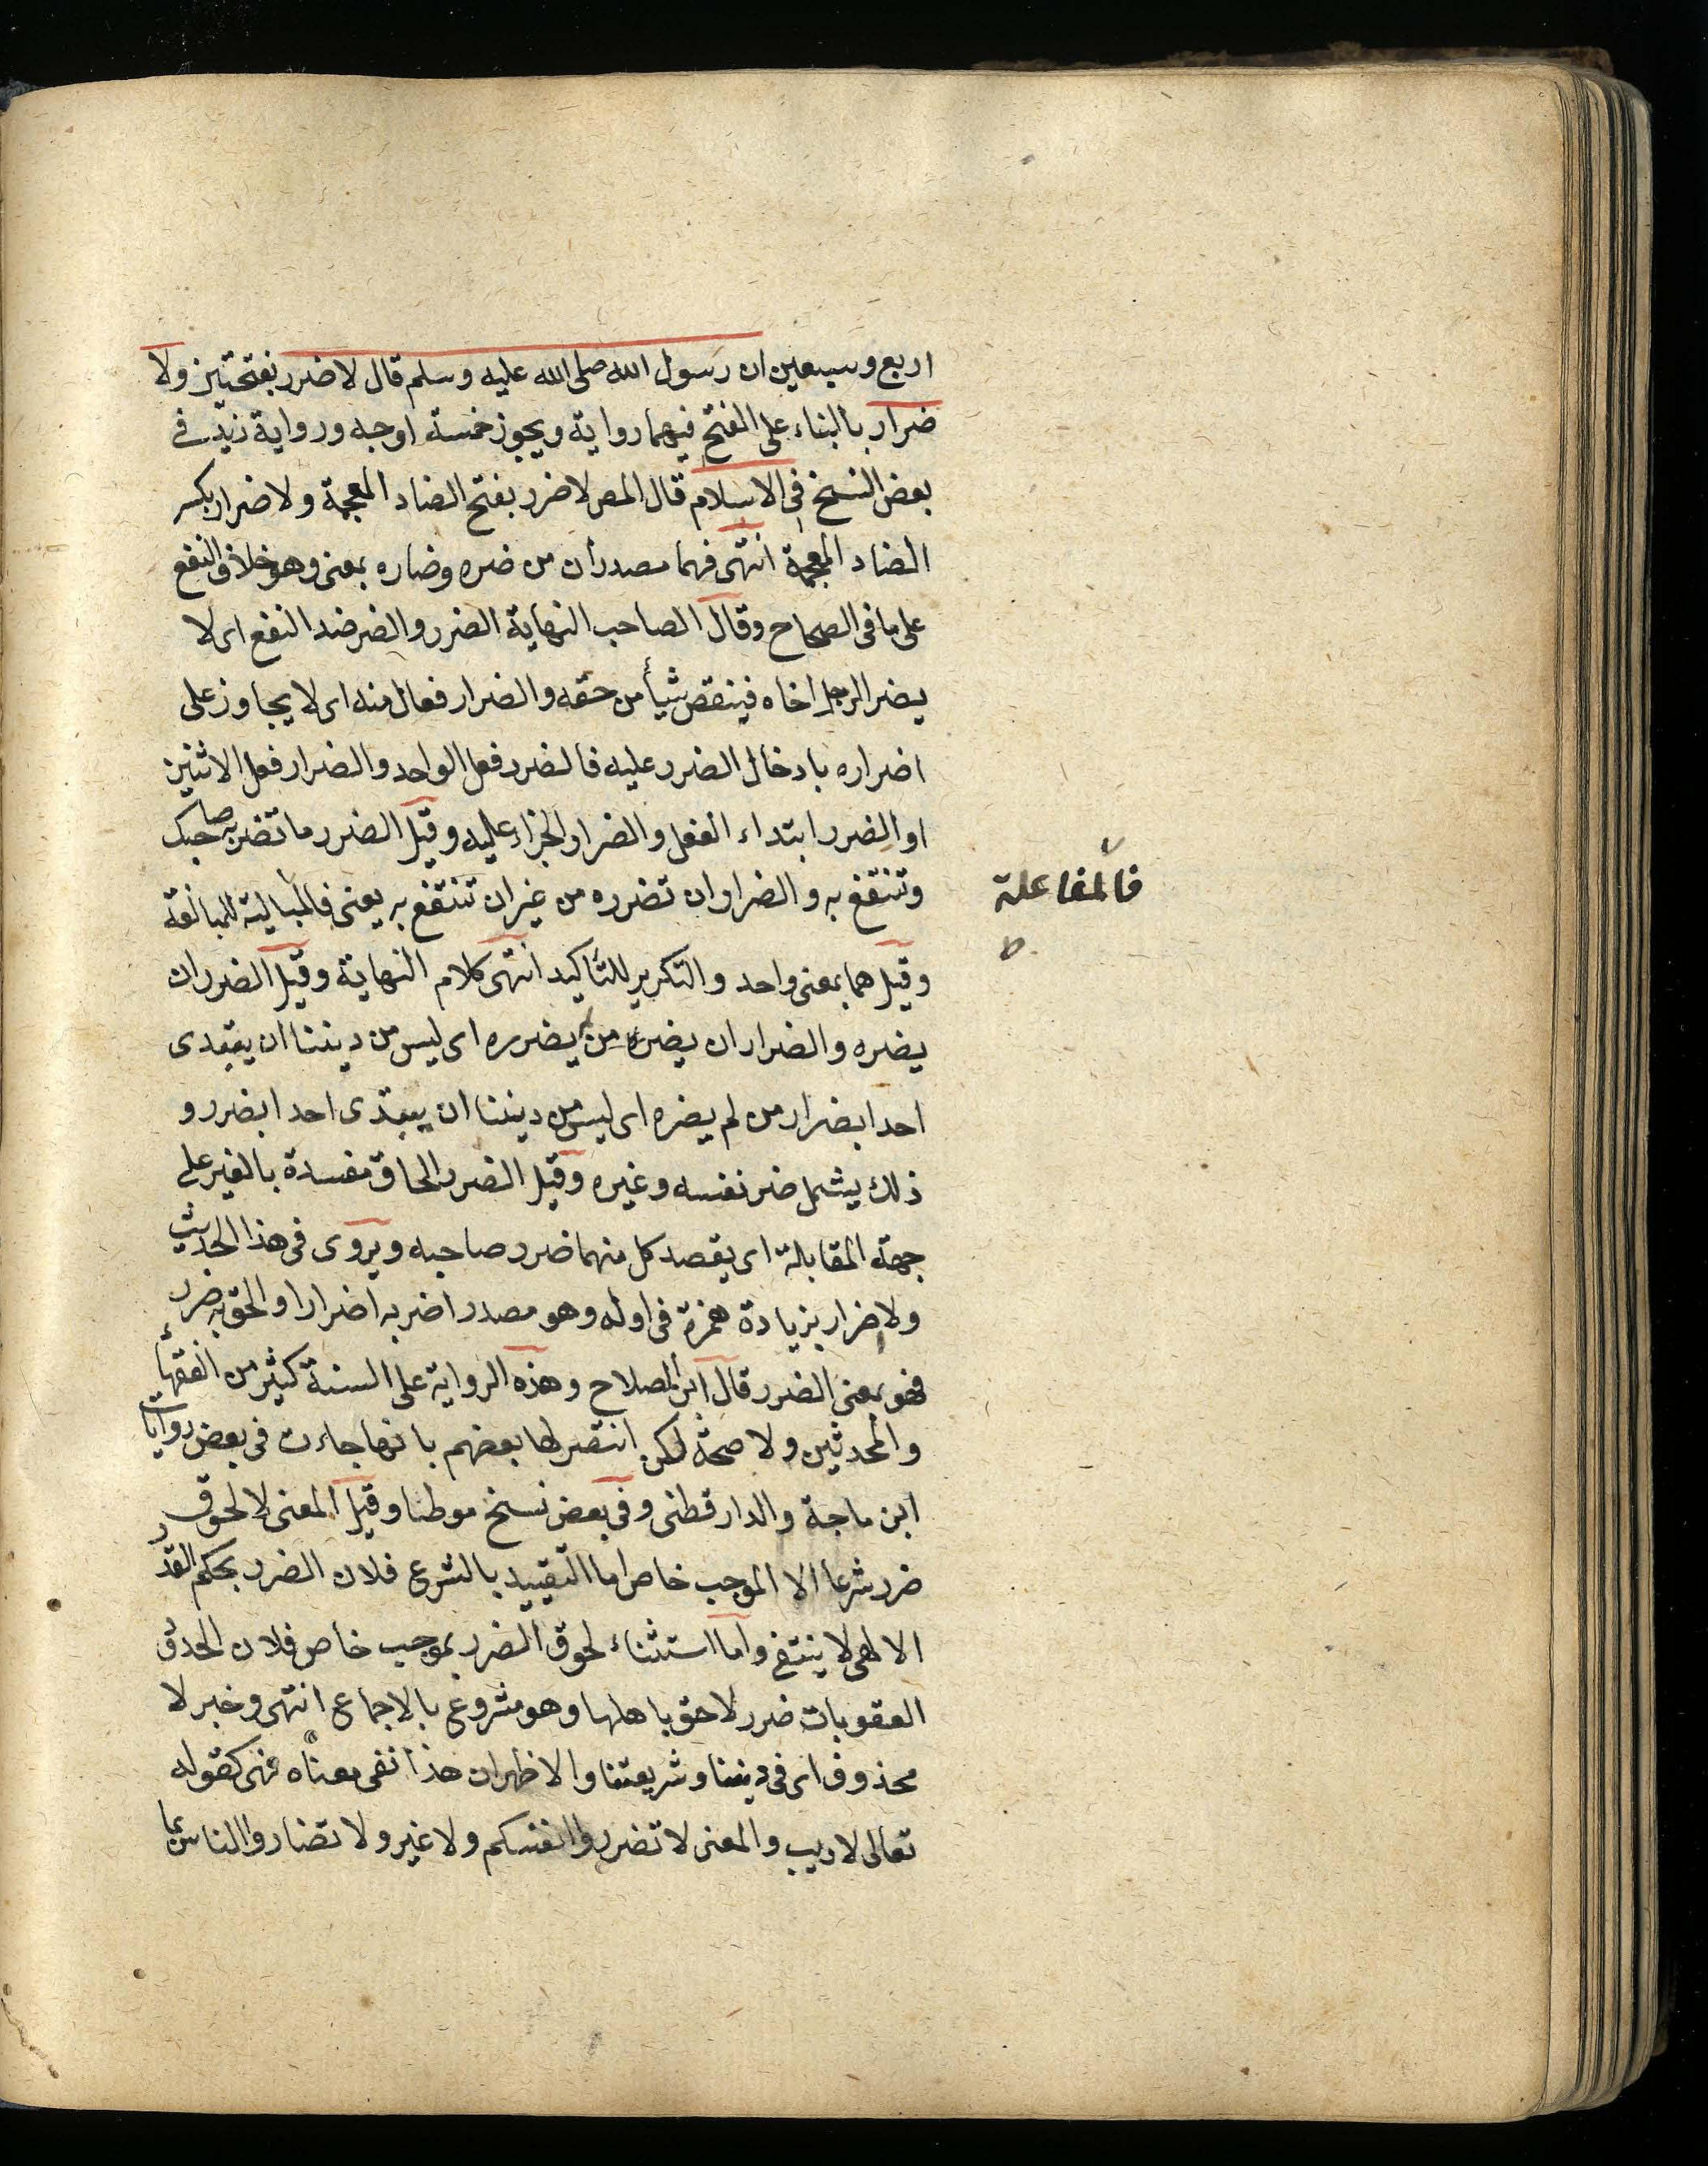 اربع وسبعين ان رسول الله صلى الله عليه وسلم قال لا ضرر بفتحتين ولا
ضرار بالبناء على الفتح فيهما رواية ويجوز خمسة اوجه ورواية زيد في
بعض النسخ في الاسلام قال المص لا ضرر بفتح الضاد المعجمة ولا ضرار بكسر
الضاد المعجمة انتهى فهما مصدران من ضره وضاره بمعنى وهو خلاف النفع
على ما في الصحاح وقال الصاحب النهاية الضرر والضر ضد النفع اى لا
يضر الرجل اخاه فينقص شيأ من حقه والضرار فعال منه اى لا يجاوز على
اضراره بادخال الضرر عليه فالضرر فعل الواحد والضرار فعل الاثنين
او الضرر ابتداء الفعل والضرار الجزاء عليه وقيل الضرر ما تضر به صاحبك
وتنتفع به والضرار ان تضرره من غير ان تنتفع به يعنى فالمبالية للمبالغة
فالمفاعلة
ط
وقيل هما بمعنى واحد والتكرير للتأكيد انتهى كلام النهاية وقيل الضرر ان
يضره والضرار ان يضره من لم يضرره اى ليس من ديننا ان يتعدى
احدا بضرار من لم يضره اى ليس من ديننا ان يبتدى احدا بضرر و
ذلك يشمل ضر نفسه وغيره وقيل الضرر الحاق مفسدة بالغير على
جهة المقابلة اى يقصد كل منهما ضرر صاحبه ويروى فى هذا الحديث
ولا اضرار بزيادة همزة فى اوله وهو مصدر اضر به اضرارا والحق به ضرر
فهو بمعنى الضرر قال ابن الصلاح وهذه الرواية على السنة كثير من الفقهاء
والمحدثين ولا صحة لكن انتصر لها بعضهم بانها جاءت فى بعض روايات
ابن ماجة والدارقطنى وفى بعض نسخ موطا وقيل المعنى لا لحوق
ضرر شرعا الا لموجب خاص اما التقييد بالشرع فلان الضرر بحكم القدر
الالهى لا ينتفى واما استثناء لحوق الضرر بموجب خاص فلان الحدق
العقوبات ضرر لاحق باهلها وهو مشروع بالاجماع انتهى وخبر لا
محذوف اى فى ديننا وشريعتنا والاظهر ان هذا نفى معناه نهى كقوله
تعالى لا ريب والمعنى لا تضرروا انفسكم ولا غير ولا تضاروا الناس بما